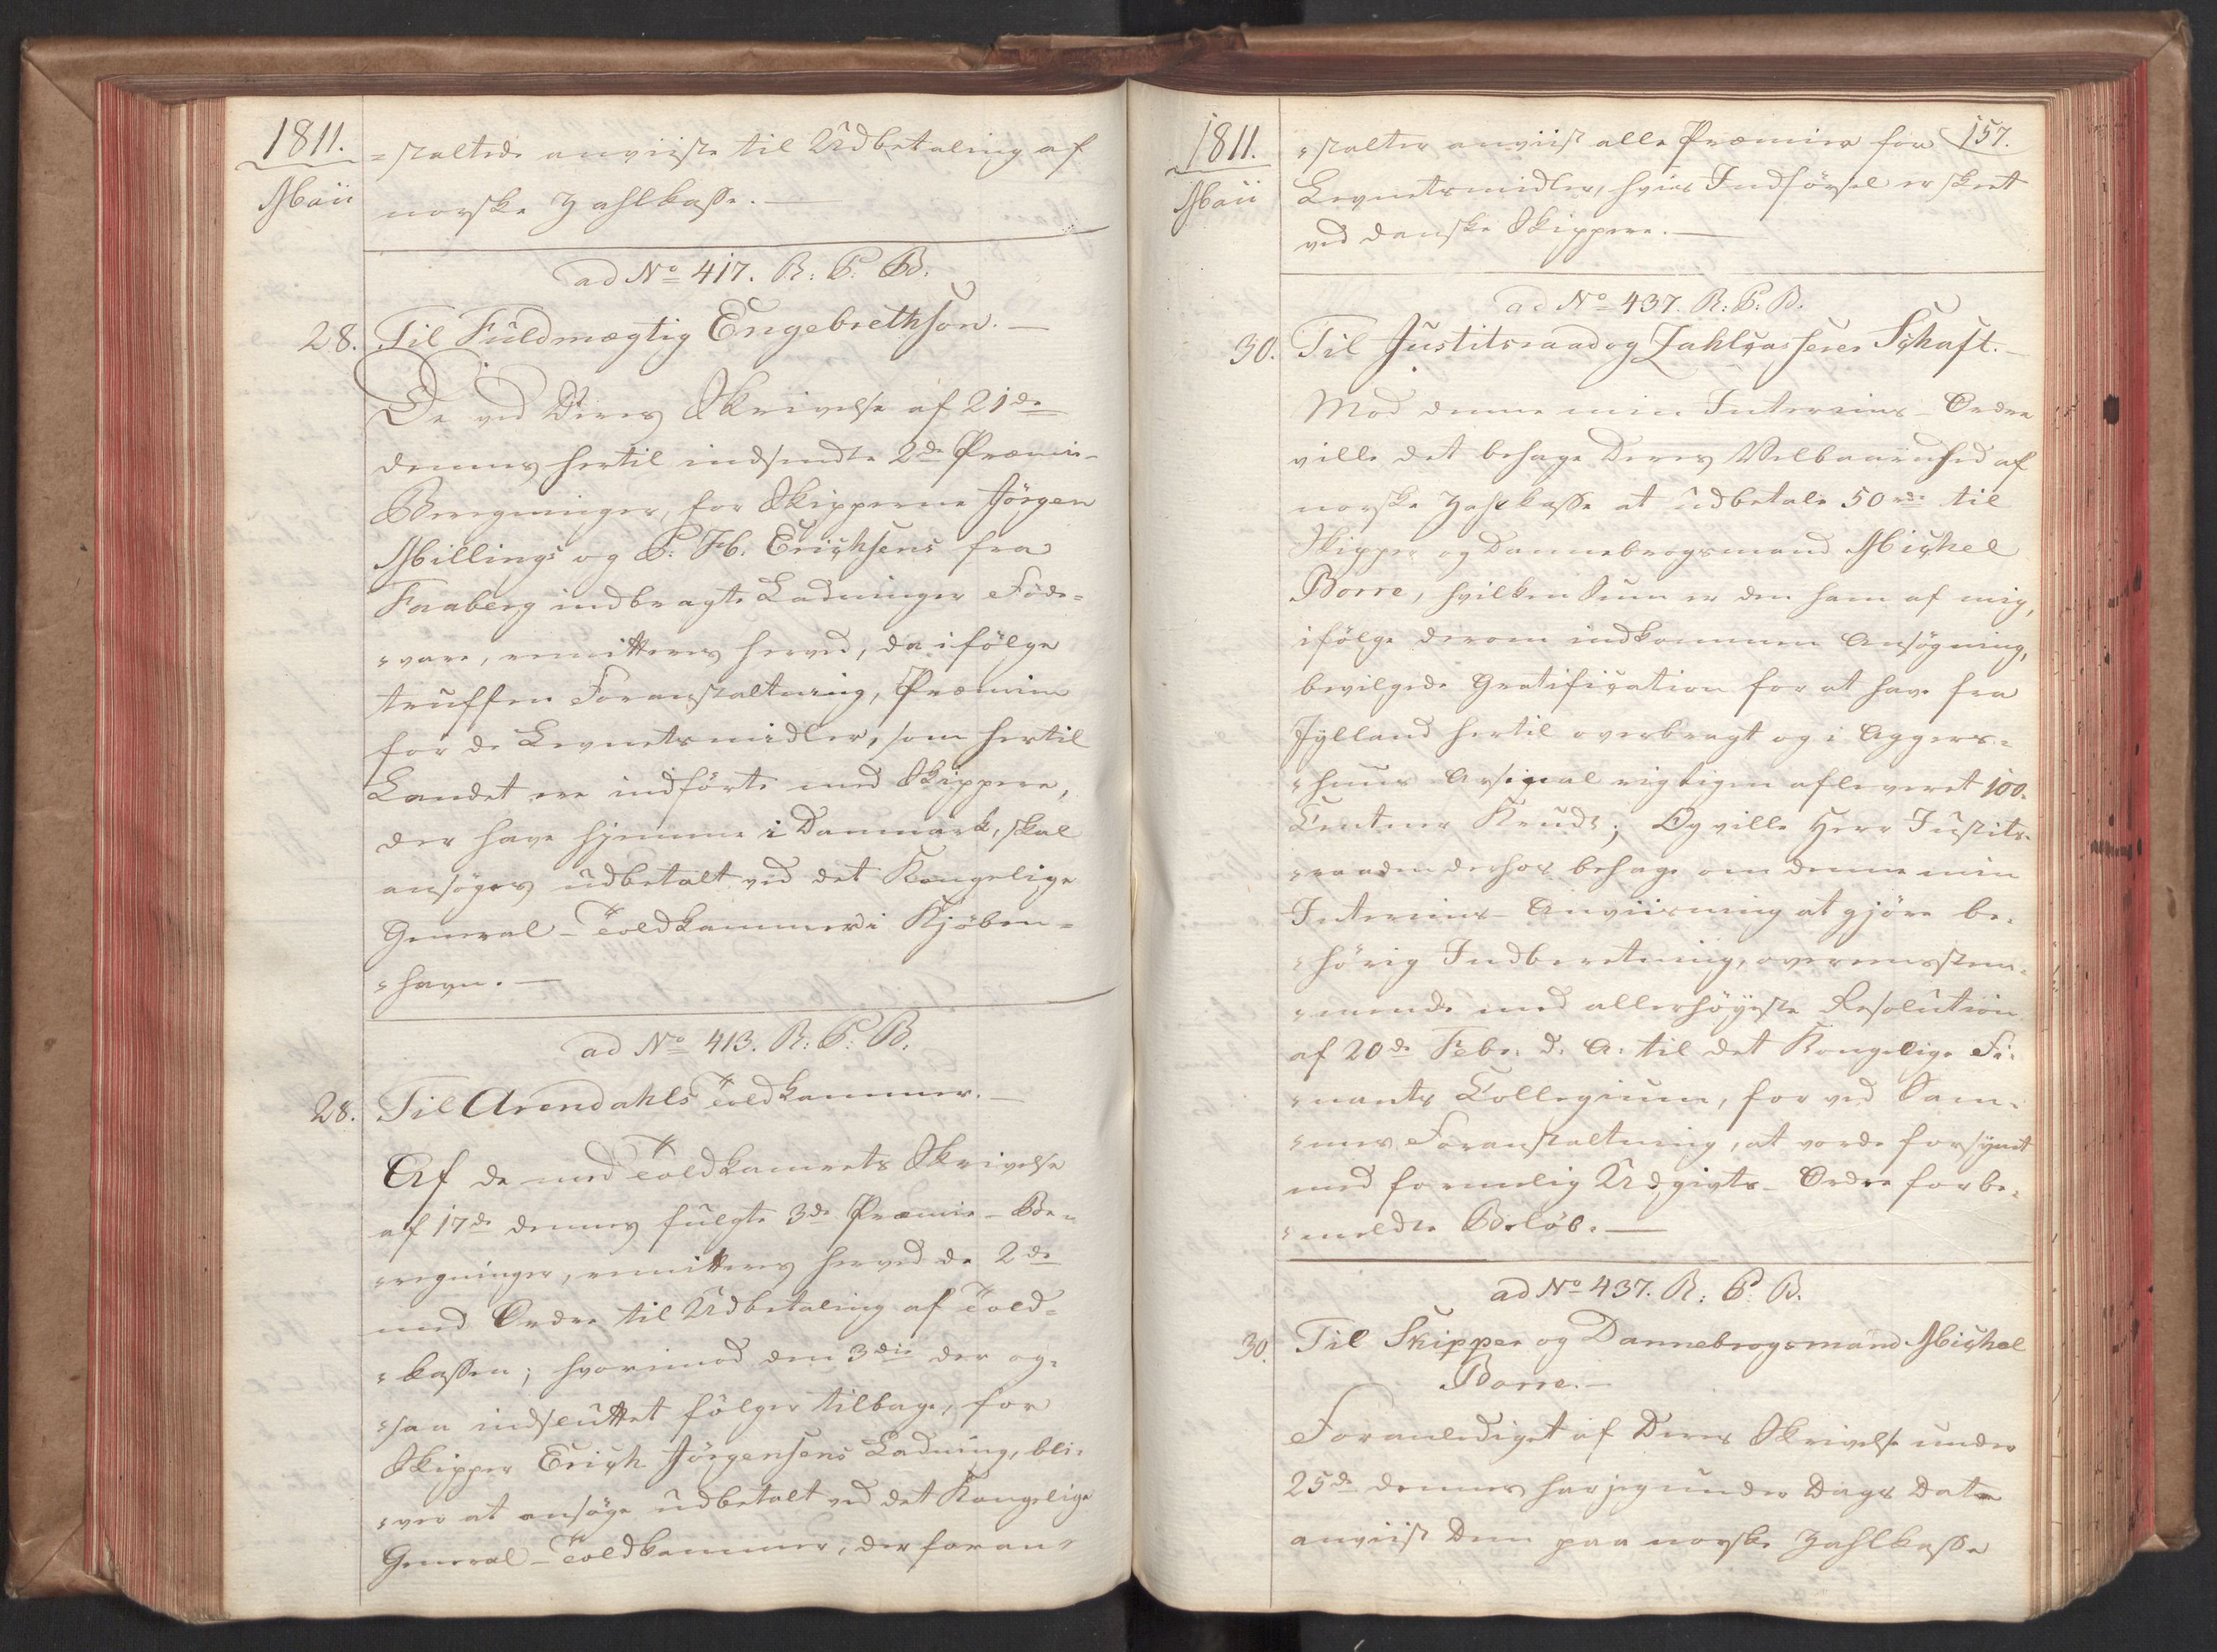 1811.
Maii
=staltede anviiste til Udbetaling af
norske Zahlkasse. —
ad No 417. R: P: B.
28. Til Fuldmægtig Engebrethson. —
De ved Deres Skrivelse af 21de
dennes hertil indsendte 2de Præmie-
Beregninger, for Skipperne Jörgen
Millings og P. M. Erichsens fra
Faaberg indbragte Ladninger Föde=
=vare, remitteres herved, da ifölge
truffen Foranstaltning, Præmien
for de Levnetsmidler, som hertil
Landet ere indförte med Skippere,
der have hjemme i Danmark, skal
ansöges udbetalt ved det Kongelige
General-Toldkammer i Kjöben=
=havn. —
ad No 413. R: P: B.
28. Til Arendahls Toldkammer. —
Af de med Toldkamrets Skrivelse
af 17de dennes fulgte 3de Præmie-Be=
=regninger, remitteres herved de 2de
med Ordre til Udbetaling af Told=
=kassen; hvorimod den 3die der og=
=saa indsluttet fölger tilbage, for
Skipper Erich Jörgensens Ladning, bli=
=ver at ansöge udbetalt ved det Kongelige
General-Toldkammer, der foran=
1811.
Maii
157.
=stalter anviist alle Præmier for
Levnetsmidler, hvis Indförsel er skeet
ved danske Skippere. —
ad No 437. R: P: B.
30. Til Justitsraad og Zahlcasserer Schaft. —
Mod denne min Interims-Ordre
ville det behage Deres Velbaarenhed af
norske Zahlkasse at udbetale 50 rdr til
Skipper og Dannebrogsmand Michel
Borre, hvilken Sum er den ham af mig,
ifölge derom indkommen Ansögning,
bevilgede Gratification for at have fra
Jylland hertil overbragt og i Aggers=
=huus Arsenal rigtigen afleveret 100.
Centner Krudt; Og ville Herr Justits=
=raaden derhos behage om denne min
Interims-Anviisning at gjöre be=
=hörig Indberetning, overensstem=
=mende med allerhöyeste Resolution
af 20de Febr. d. A: til det Kongelige Fi=
=nants Collegium, for ved Sam=
=mes Foranstaltning, at vorde forsynet
med formelig Udgivts-Ordre for be=
=meldte Belöb. —
ad No 437. R: P: B.
30. Til Skipper og Dannebrogsmand Michel
Borre. —
Foranlediget af Deres Skrivelse under
25de dennes har jeg under Dags Dato
anviist Dem paa norske Zahlkasse